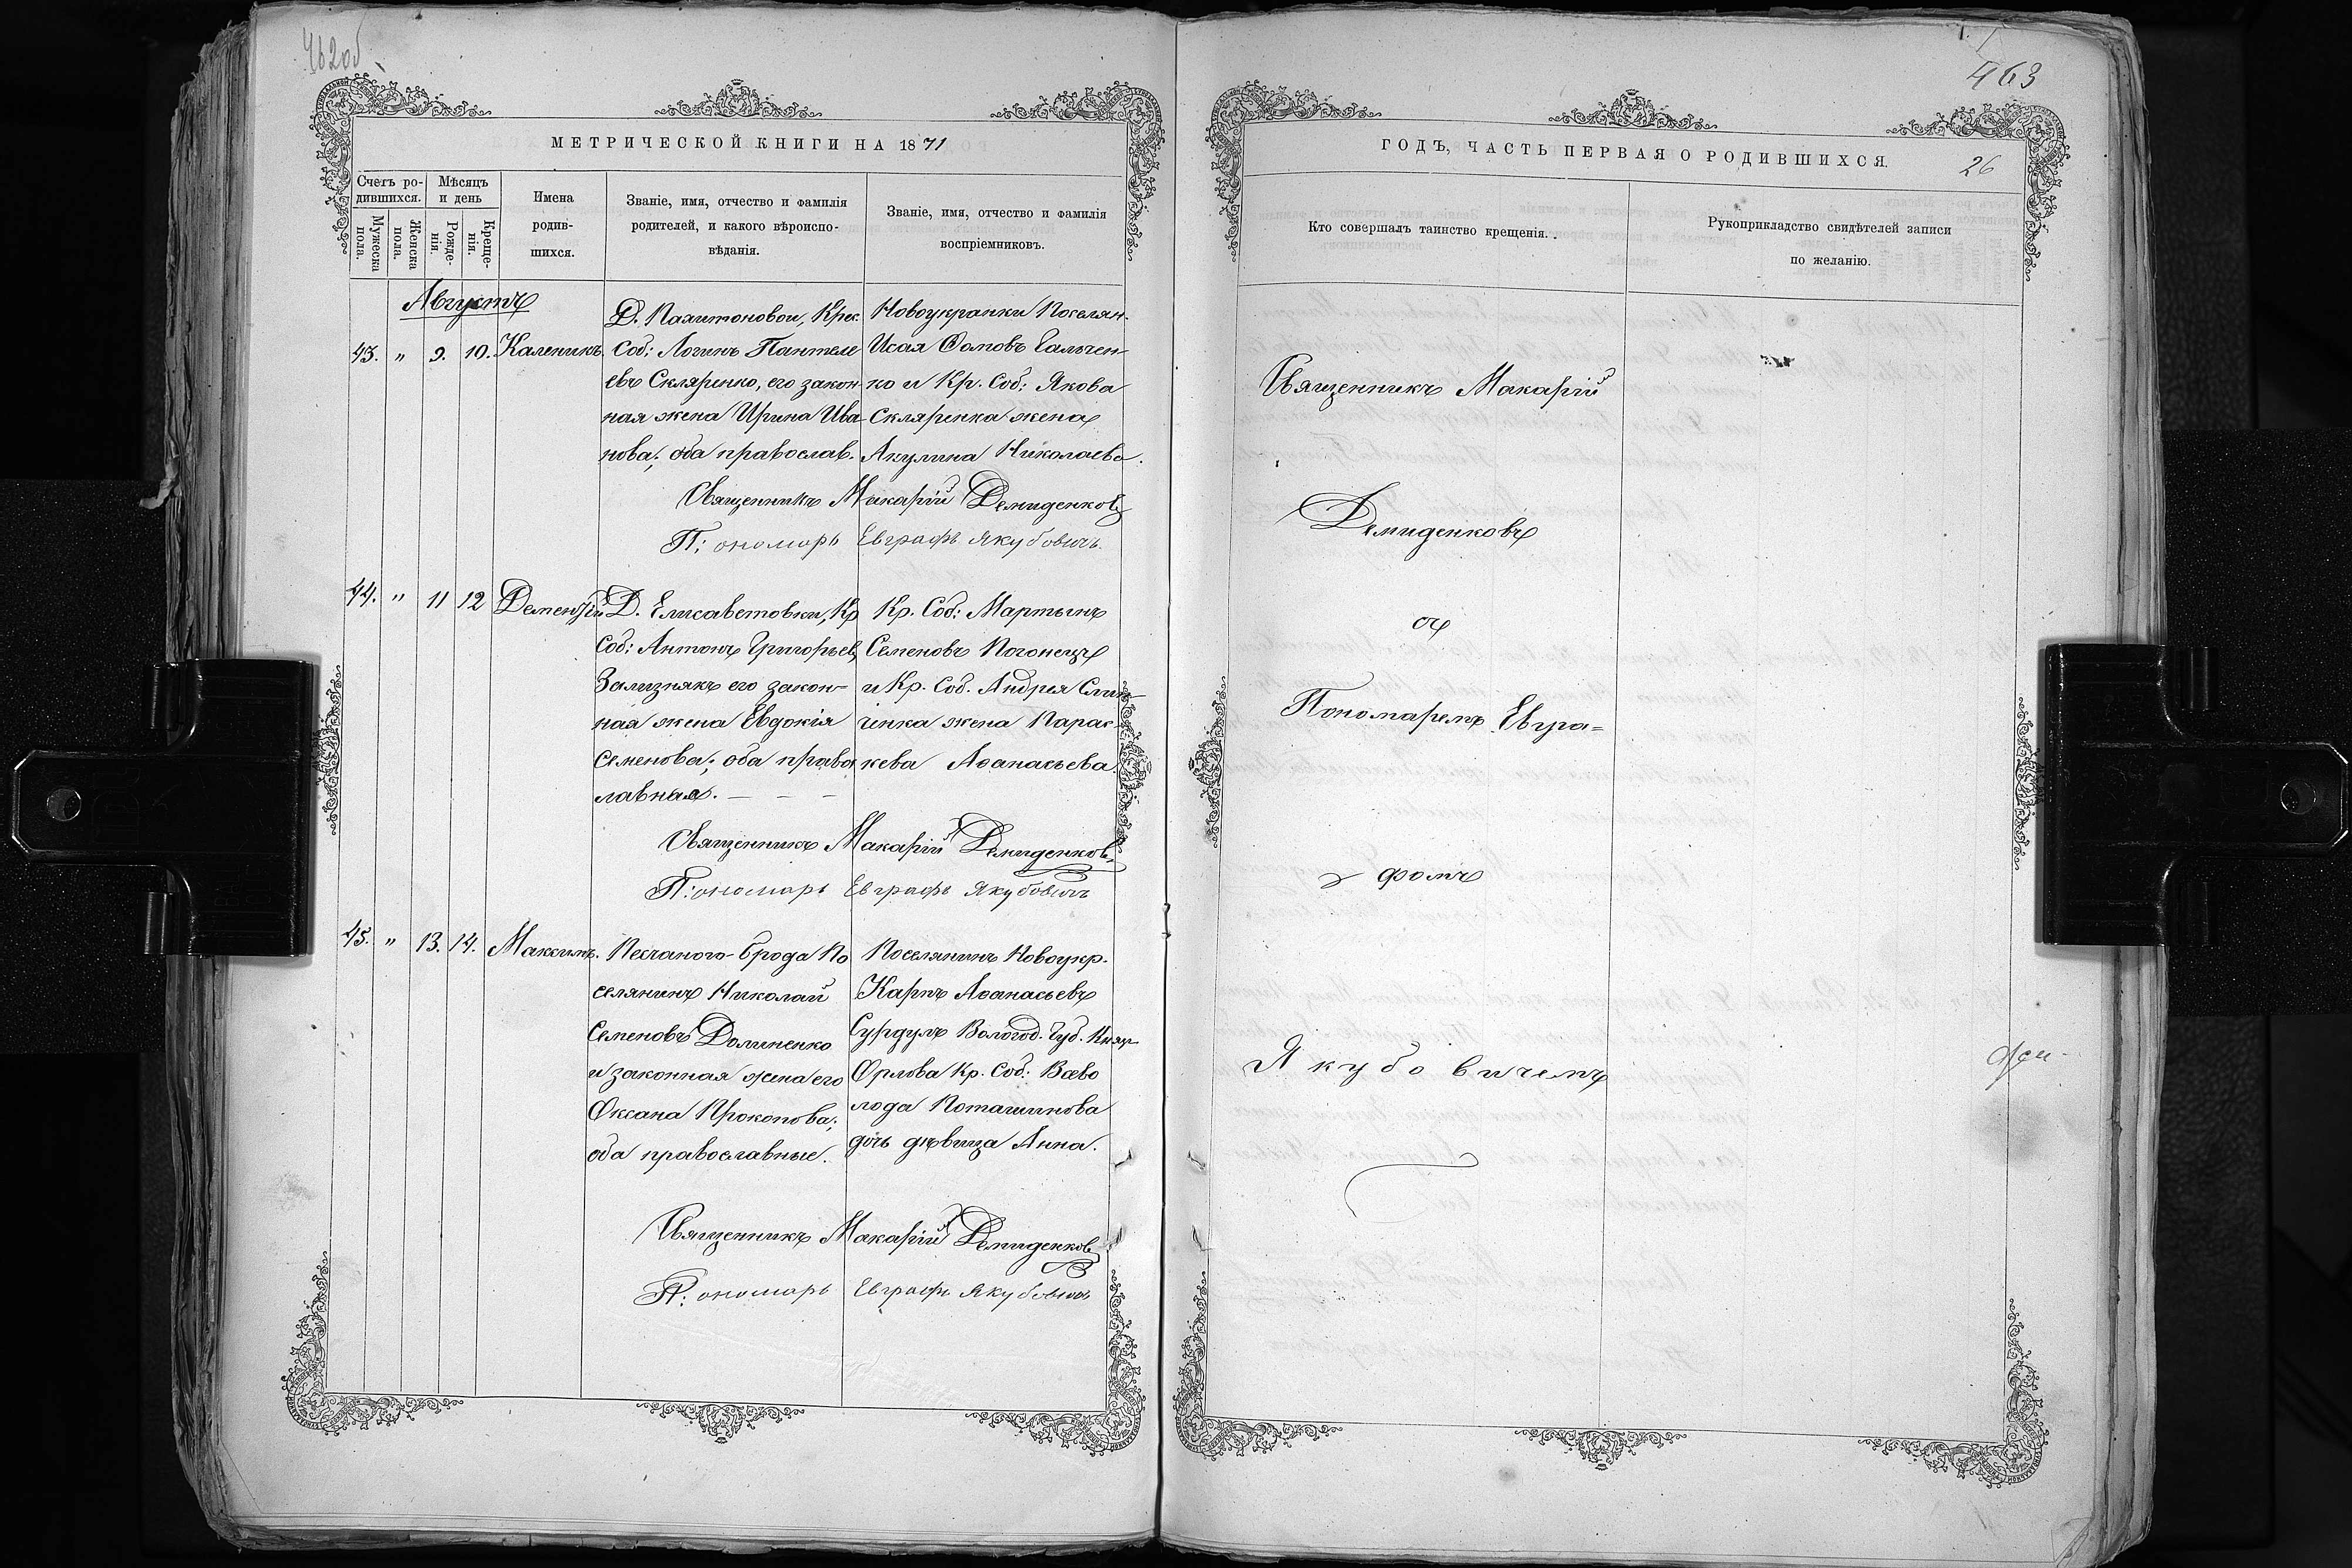 462об
МЕТРИЧЕСКОЙ КНИГИ НА 1871
Счетъ ро-
дившихся.
Мѣсяцъ
и день
Мужеска
пола.
Женска
пола.
Рожде-
нія.
Креще-
нія.
Имена
родив-
шихся.
Званіе, имя, отчество и фамилія
родителей, и какого вѣроиспо-
вѣданія.
Званіе, имя, отчество и фамилія
воспріемниковъ.
Августъ
43. " 9. 10. Каленикъ.
Д. Палитоновой, Крес.
Соб: Логинъ Пантеле
евъ Скляренко, его закон-
ная жена Ирина Ива-
нова; оба православ.
Новоукраинки Поселян.
Исая Ѳомовъ Гальчен-
ко и Кр. Соб: Якова
Скляренка жена
Акулина Николаева.
Священникъ Макарій Демиденковъ
П: ономарь Евграфъ Якубовичъ.
44. " 11 12 Дементій
Д. Елисаветовки, Кр
Соб: Антонъ Григорьевъ
Зализнякъ его закон-
ная жена Евдокія
Семенова; оба право
лавная. — — —
Кр. Соб: Мартынъ
Семеновъ Погонецъ
и Кр. Соб. Андрея
ченка жена Парас-
кева Аѳанасьева.
Священникъ Макарій Демиденковъ
П: ономарь Евграфъ Якубовичъ
45. " 13. 14. Максимъ.
Песчаного-Брода По
селянинъ Николай
Семеновъ Долиненко
и законная жена его
Оксана Прокопова;
оба православные.
Поселянинъ Новоукр.
Карпъ Аѳанасьевъ
Сурдулъ Вологод. Губ. Княз
Орлова Кр. Соб: Всево
лода Поташинова
дочь дѣвица Анна.
Священникъ Макарій Демиденковъ
П: ономарь Евграфъ Якубовичъ
463
ГОДЪ, ЧАСТЬ ПЕРВАЯ О РОДИВШИХСЯ.
26
Кто совершалъ таинство крещенія.
Рукоприкладство свидѣтелей записи
по желанію.
Священникъ Макарій
Демиденковъ
съ
Пономаремъ Евгра=
фомъ
Якубовичемъ